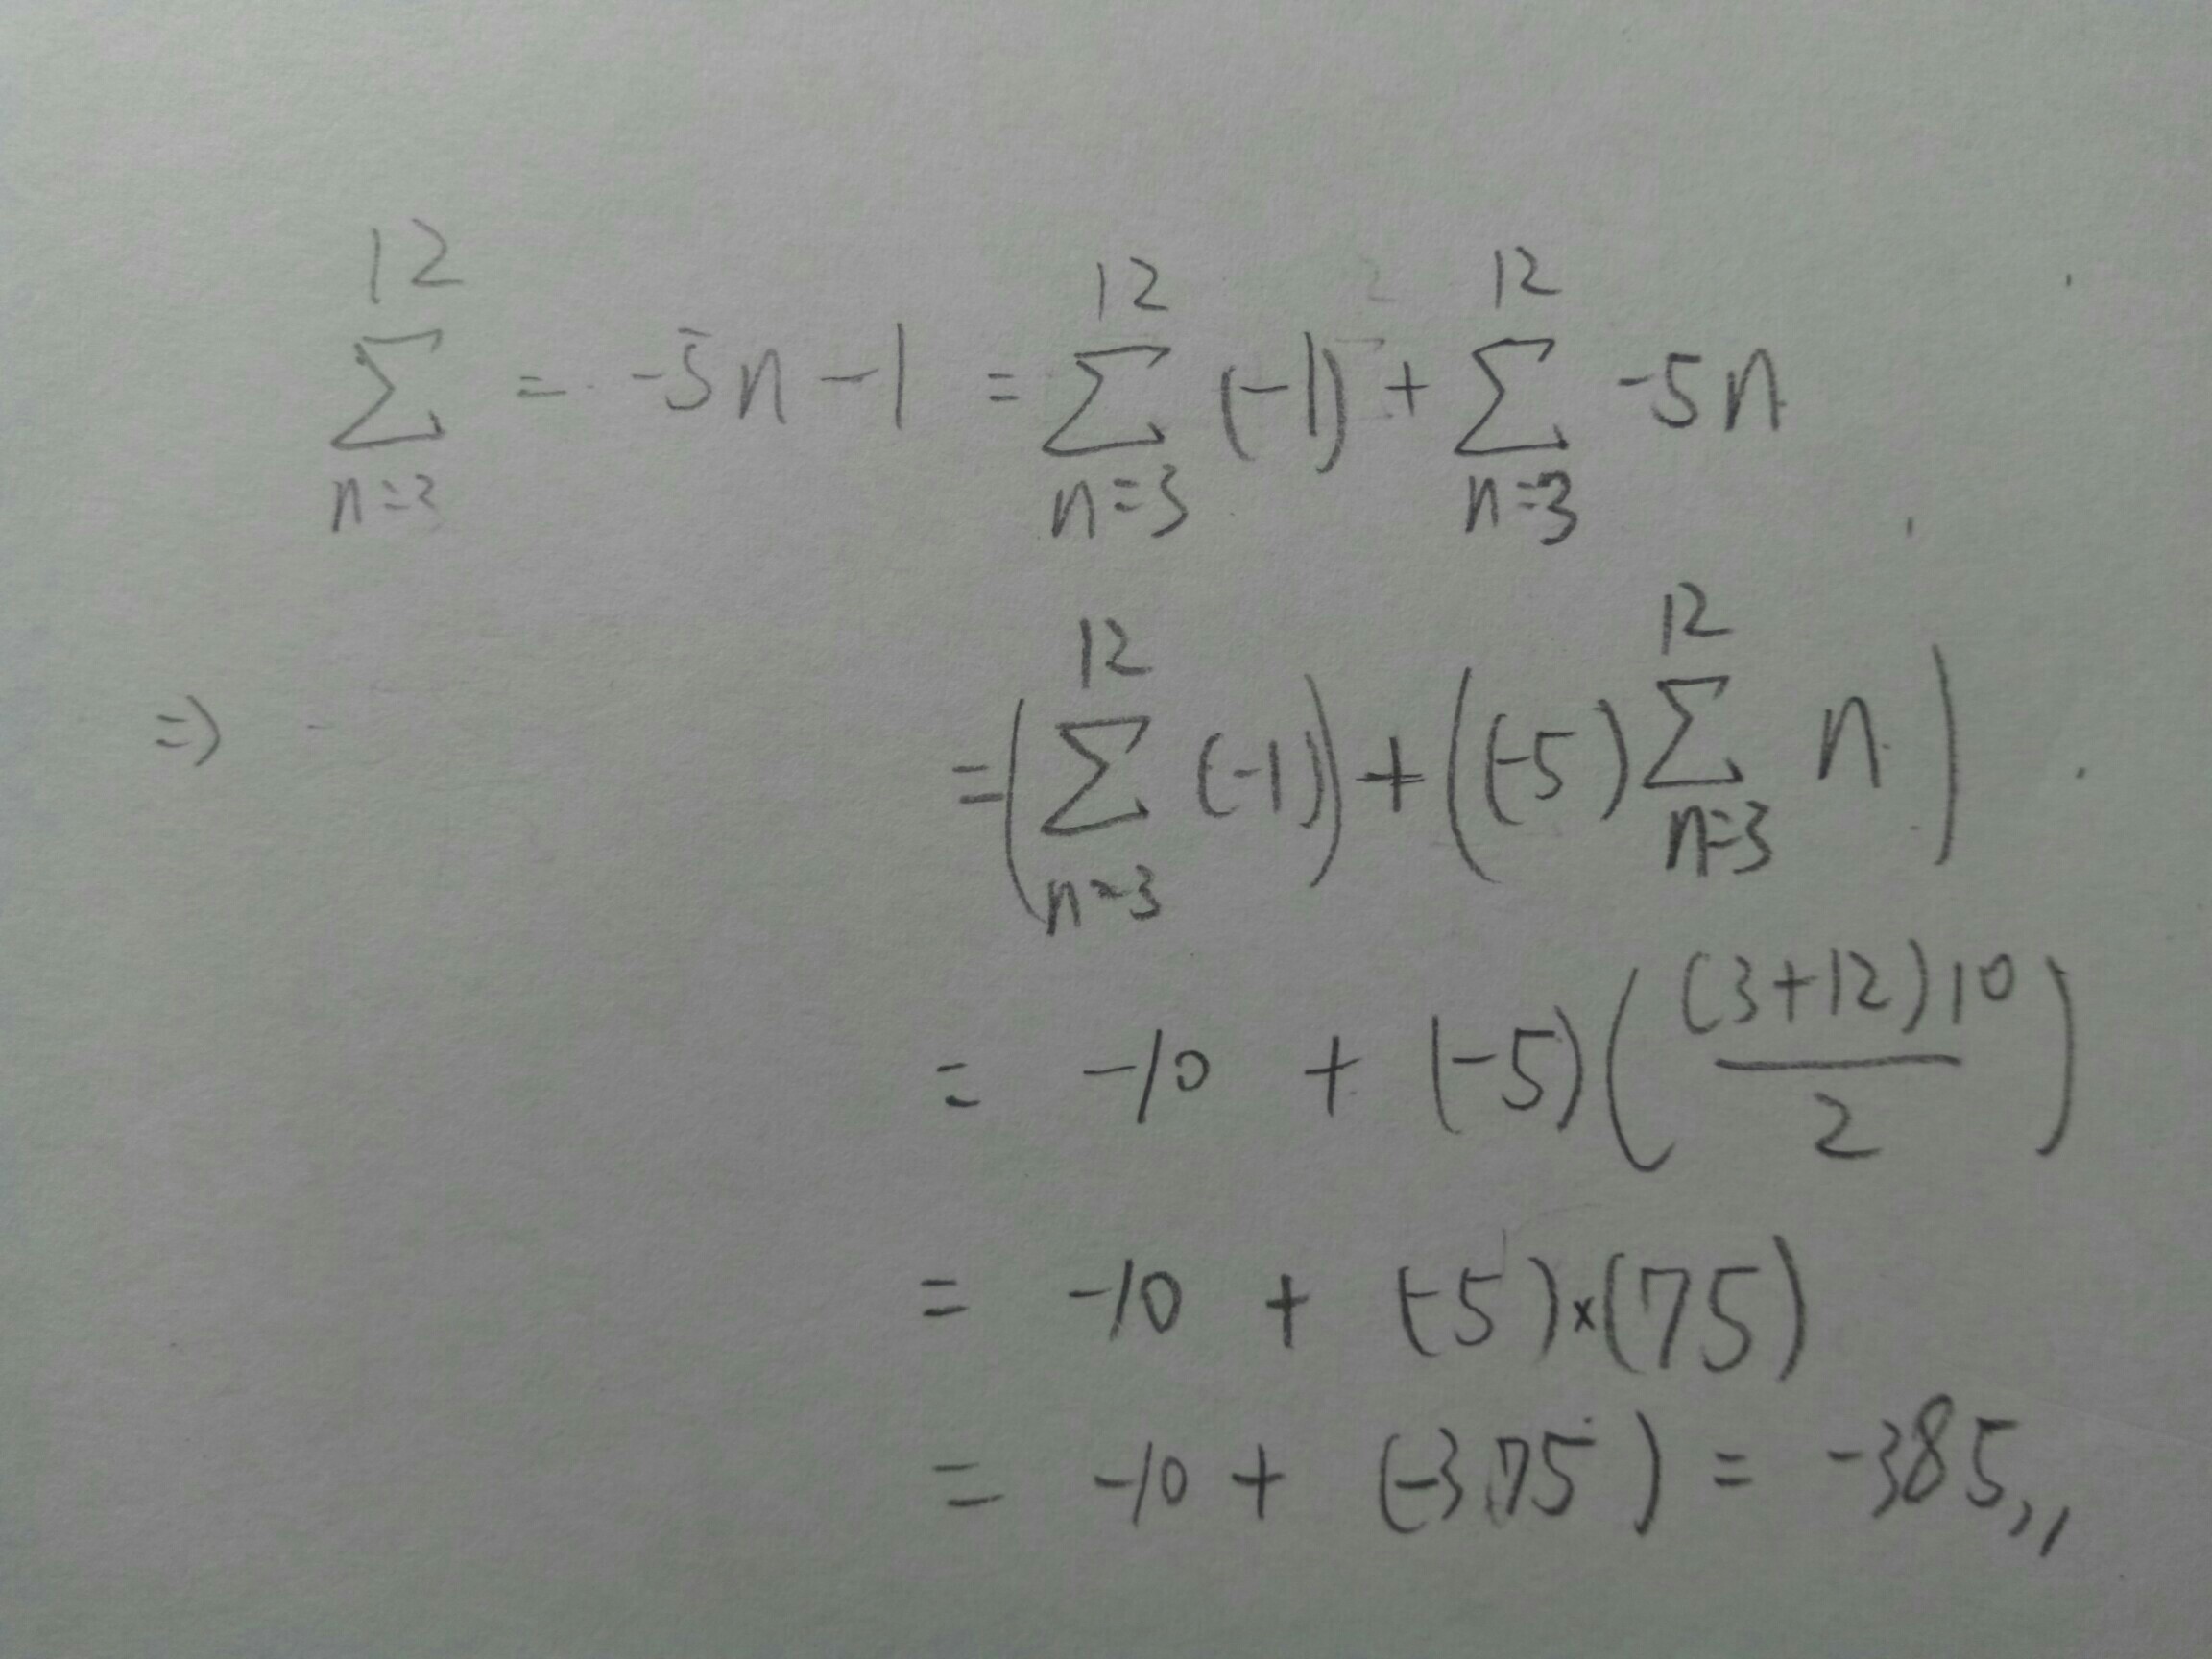 \sum_{n=3}^{12} = -5n-1 = \sum_{n=3}^{12} (-1) + \sum_{n=3}^{12} -5n
=> = (\sum_{n=3}^{12} (-1)) + ((-5) \sum_{n=3}^{12} n)
= -10 + (-5) (\frac{(3+12)10}{2})
= -10 + (-5)×(75)
= -10 + (-375) = -385,,